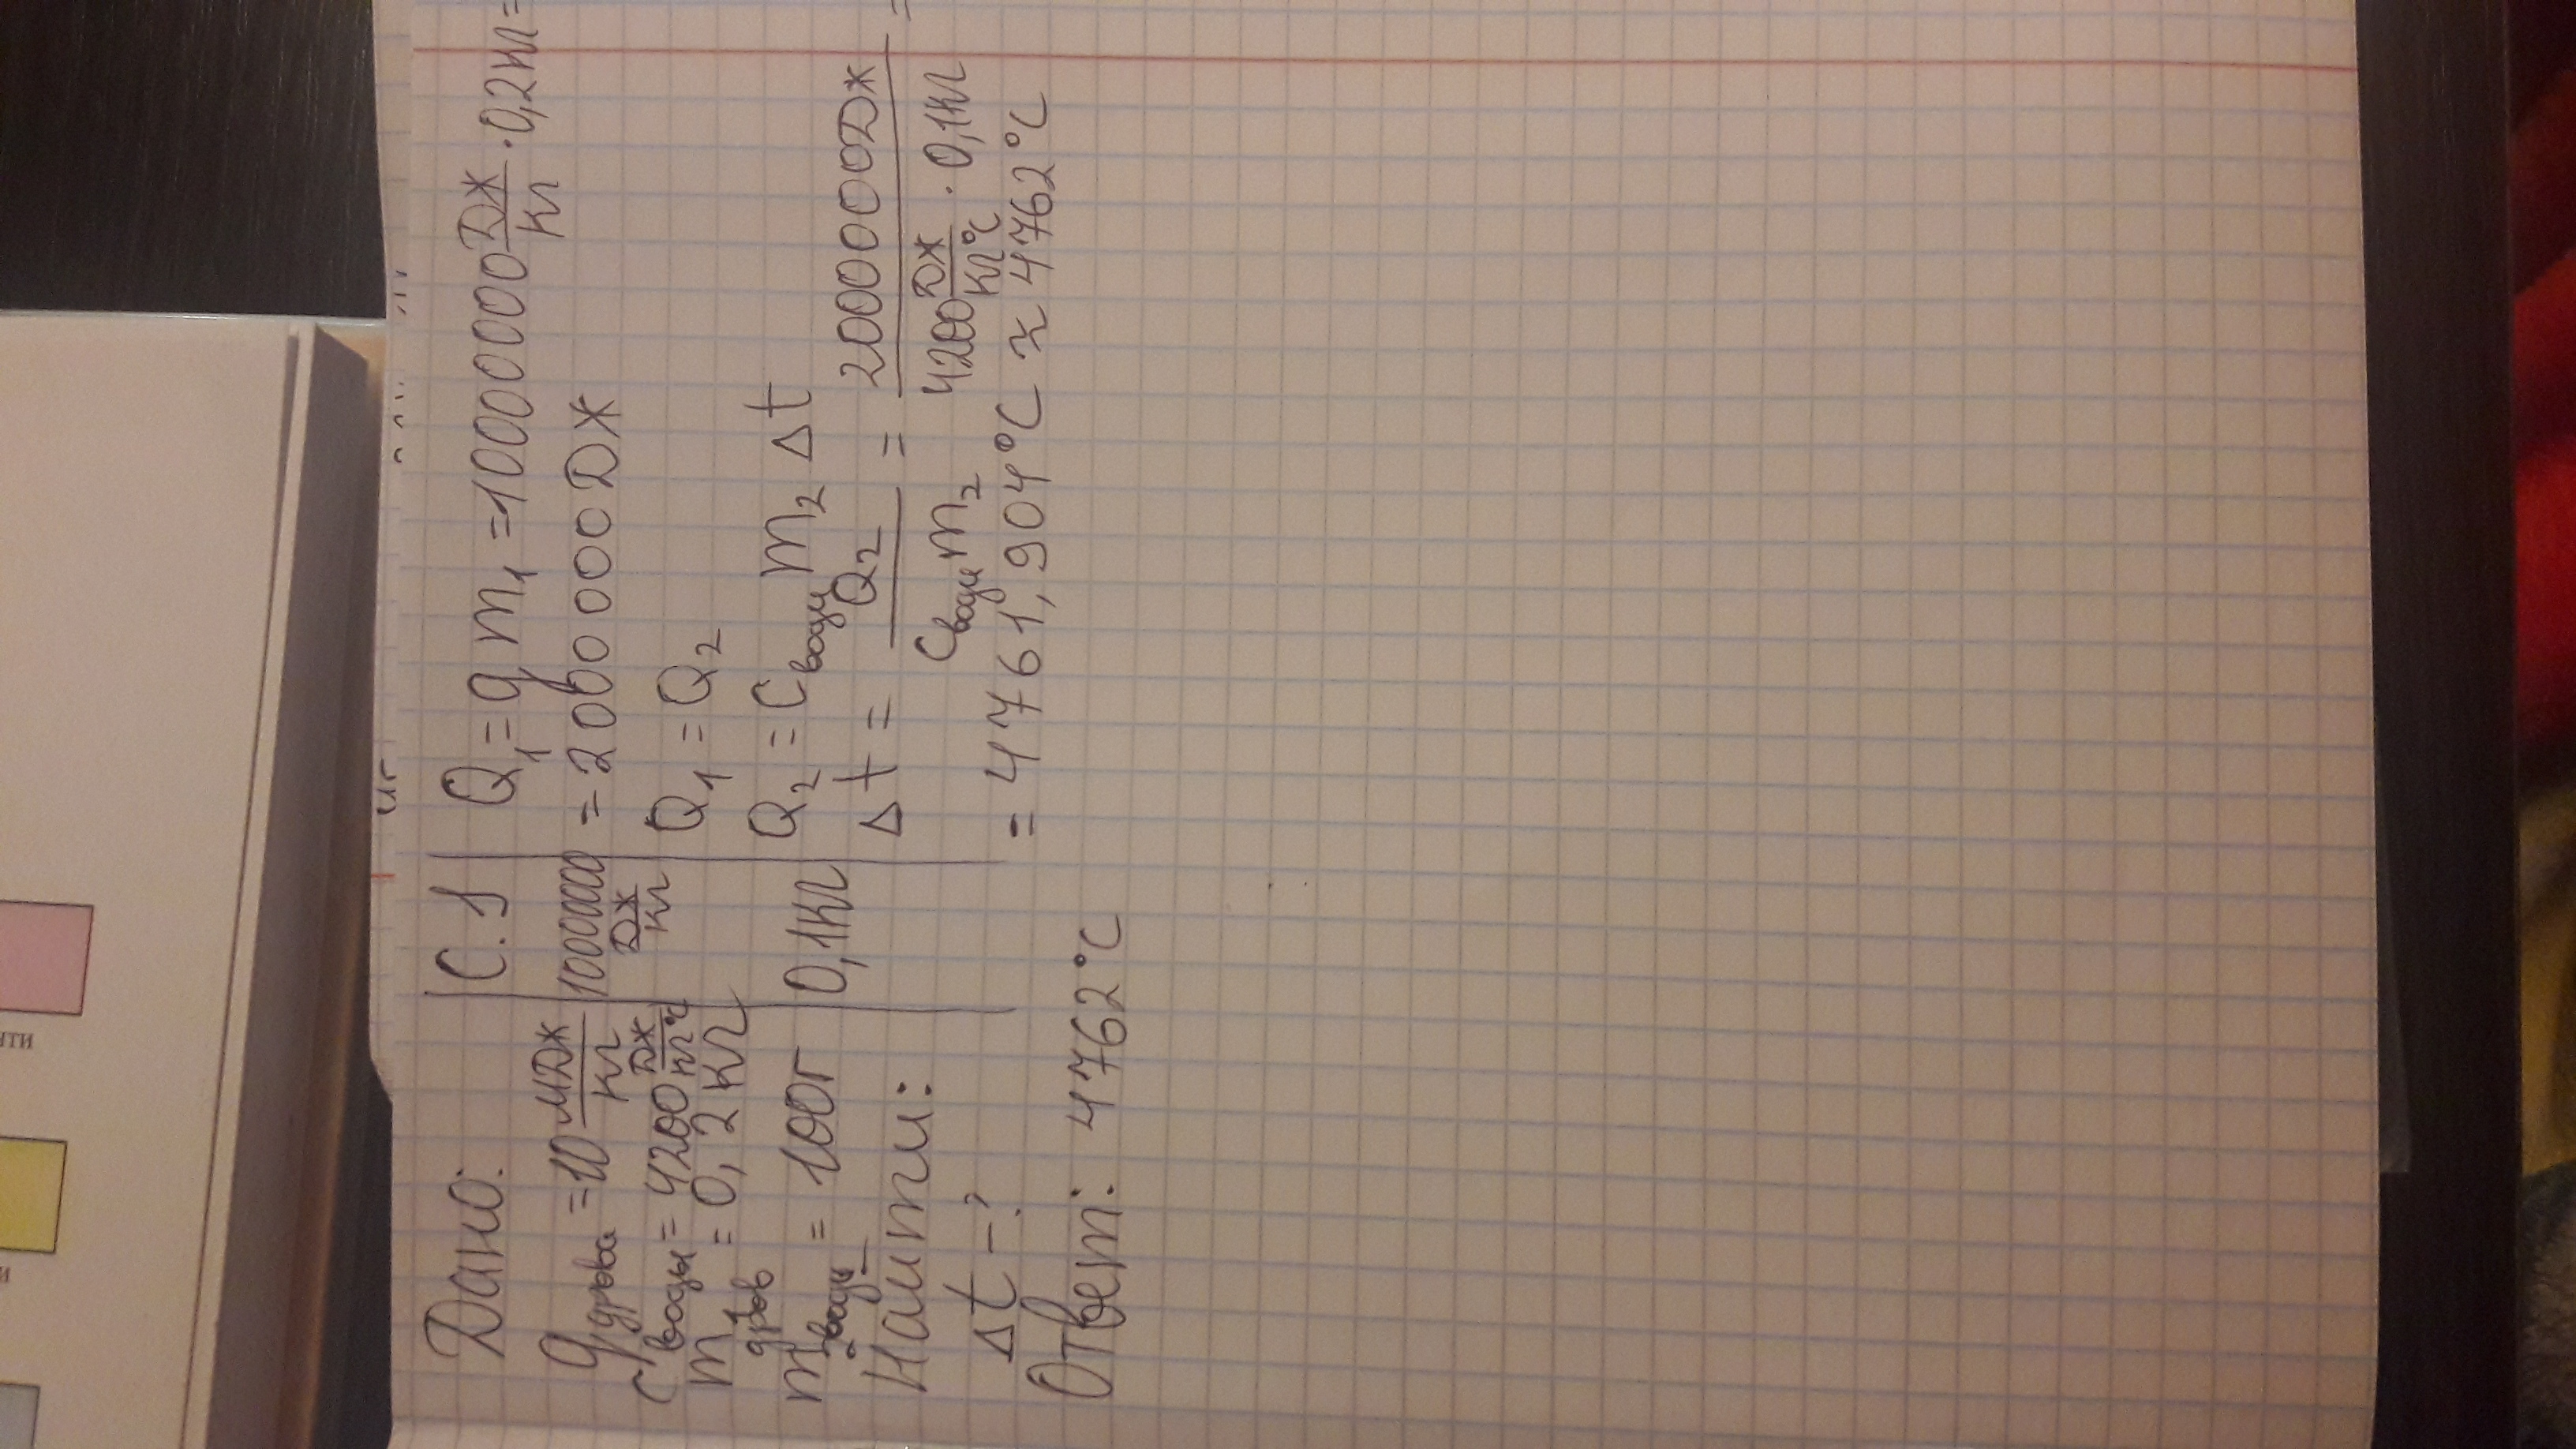 Дано:
qдрова = 10 МДж/кг
своды = 4200 Дж/кг°С
m1дров = 0,2 кг
m2воды = 100г
Наити:
Δt - ?
С.S
10000000 Дж/кг
0,1кг
Q1 = qm1 = 10000000 Дж/кг · 0,2кг =
= 2000000Дж
Q1 = Q2
Q2 = Cводы m2 Δt
Δt = Q2/Cводы m2 = 2000000Дж/4200 Дж/кг°С · 0,1кг =
= 4761,904°С ≈ 4762°С
Ответ: 4762°С